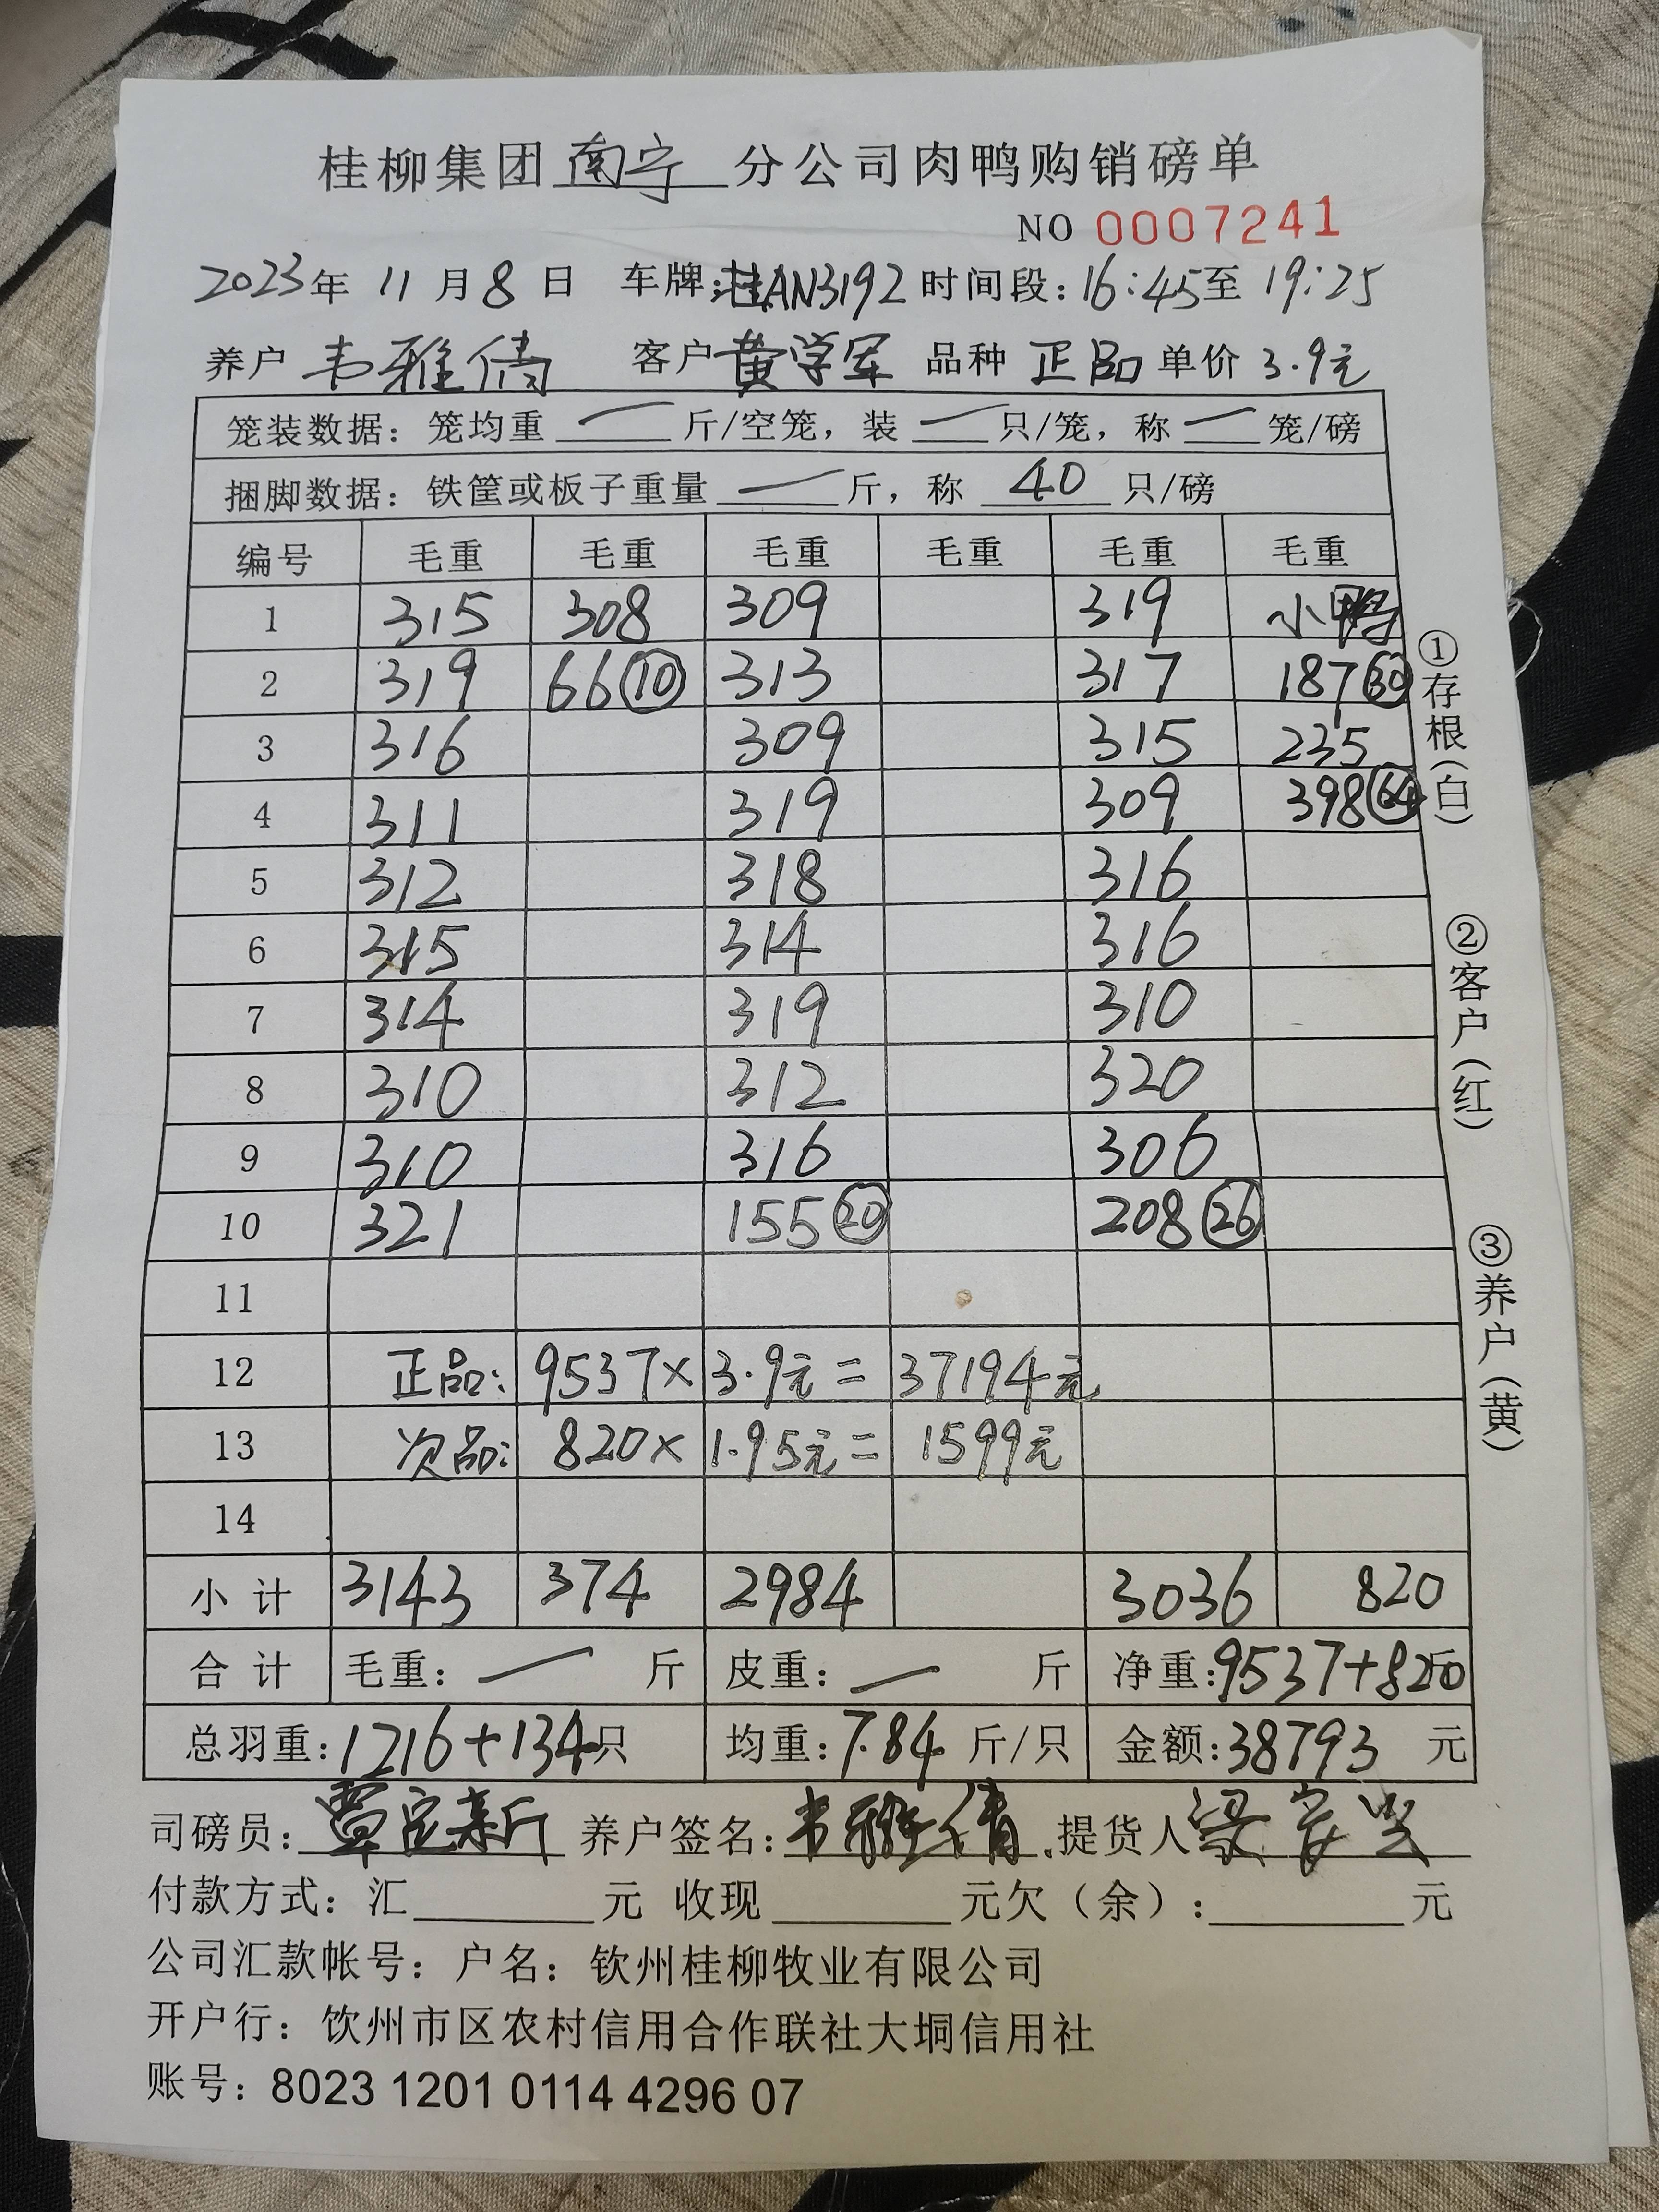 桂柳集团南宁分公司肉鸭购销磅单
NO 0007241
2023年 11月8日 车牌:桂AN3192 时间段:16:45至 19:25
养户 韦雅倩 客户 黄学军 品种 正品 单价 3.9元
笼装数据:笼均重 一 斤/空笼,装 一 只/笼,称 一 笼/磅
捆脚数据:铁筐或板子重量 一 斤,称 40 只/磅
编号 毛重 毛重 毛重 毛重 毛重 毛重
1 315 308 309 319 小鸭
2 319 66⑩ 313 317 187㉚
3 316 309 315 235
4 311 319 309 398(64)
5 312 318 316
6 315 314 316
7 314 319 310
8 310 312 320
9 310 316 306
10 321 155⑳ 208㉖
11
12 正品: 9537× 3.9元= 37194元
13 次品: 820× 1.95元= 1599元
14
小计 3143 374 2984 3036 820
合计 毛重: 一 斤 皮重: 一 斤 净重:9537+820斤
总羽重:1216+134只 均重:7.84 斤/只 金额:38793 元
司磅员: 养户签名:韦雅倩 提货人
付款方式:汇 元 收现 元欠(余): 元
公司汇款帐号:户名:钦州桂柳牧业有限公司
开户行:饮州市区农村信用合作联社大垌信用社
账号:8023 1201 0114 4296 07
①存根(白)
②客户(红)
③养户(黄)